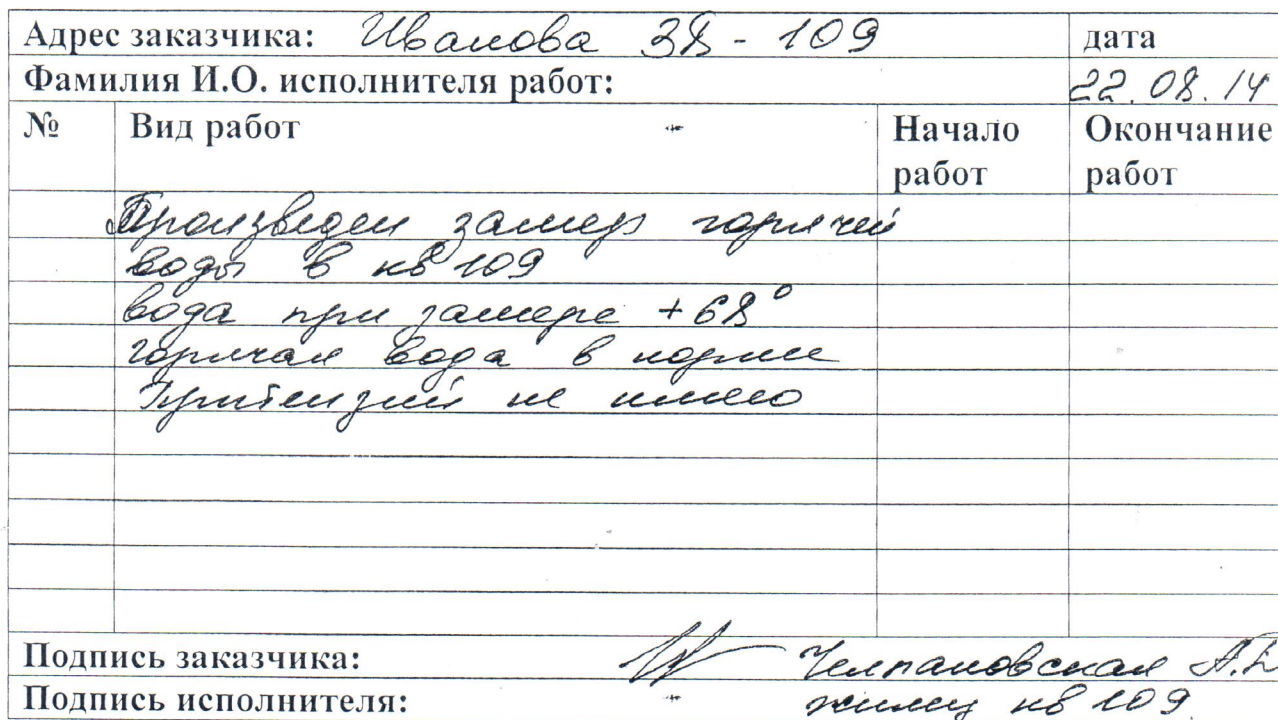 Адрес заказчика: Иванова 38 - 109 дата
Фамилия И.О. исполнителя работ: 22.08.14
№ Вид работ Начало работ Окончание работ
Произведен замер горячей
воды в кв 109
вода при замере +68°
горячая вода в норме
Притензий не имею
Подпись заказчика: Челпановская А.
Подпись исполнителя: жилец кв 109